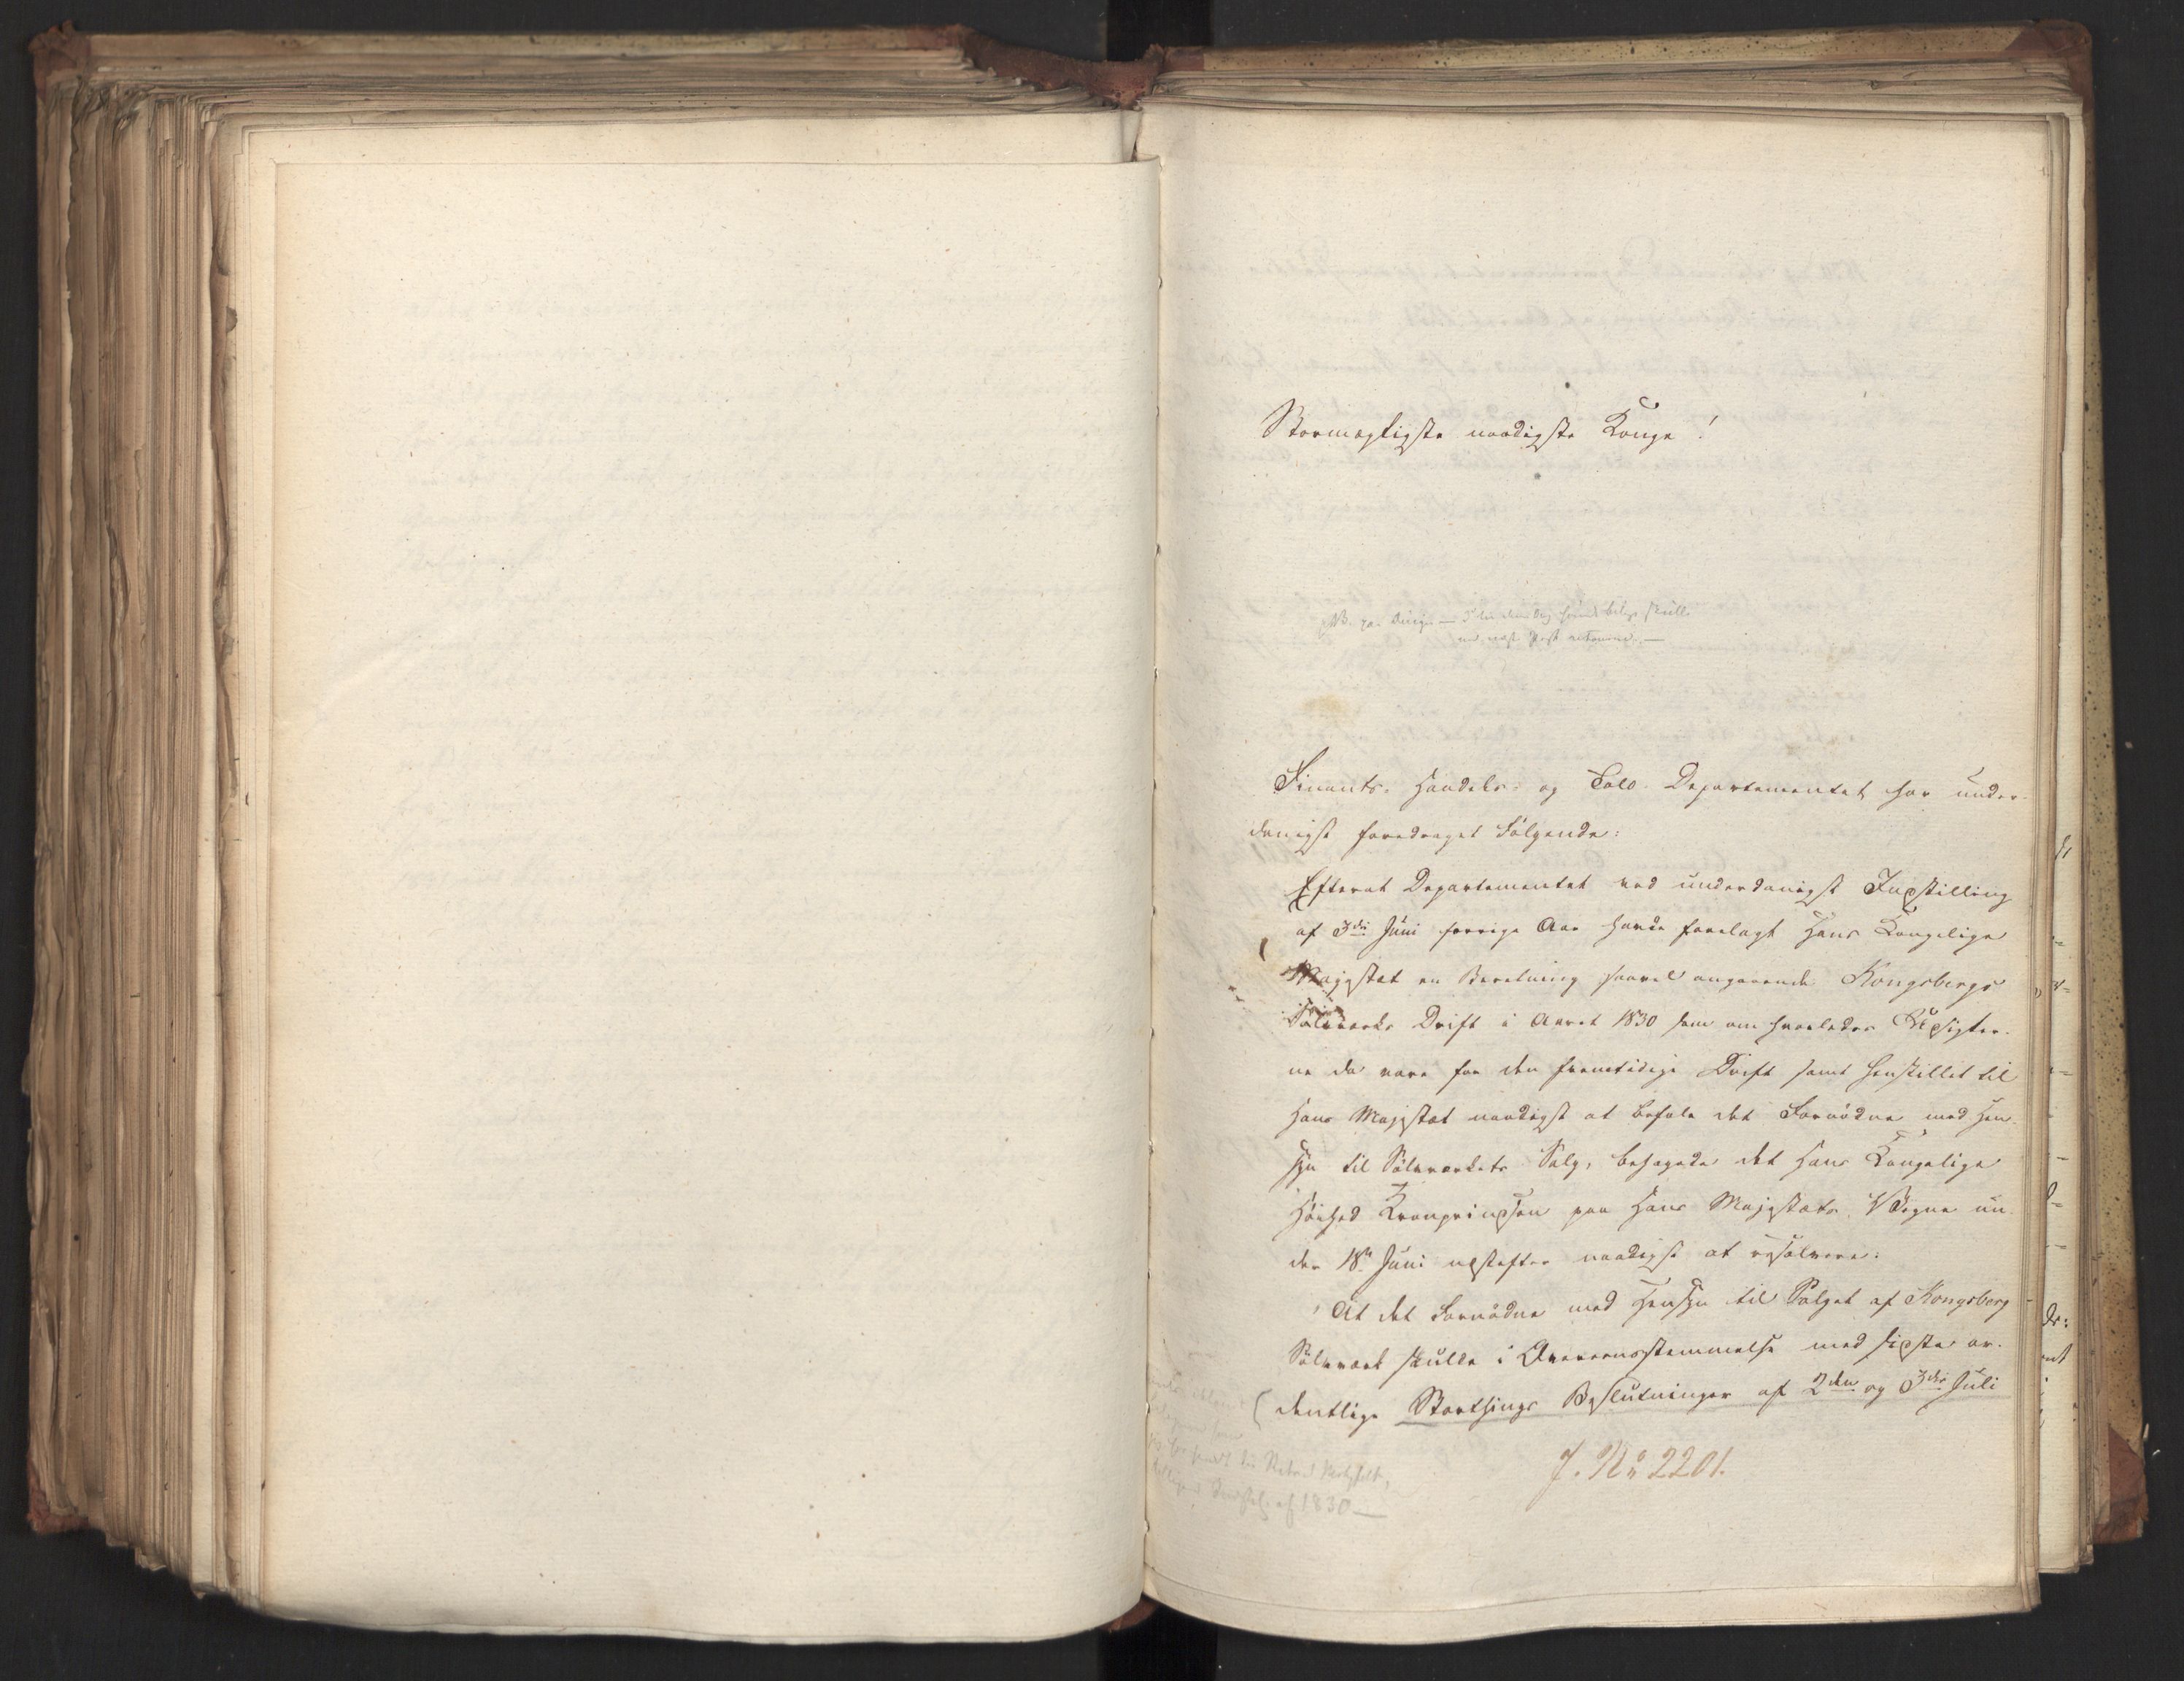 Stormægtigste naadigste Konge!
Finants- Handels- og Told-Departementet har under-
danigst foredraget Følgende:
Efterat Departementet ved underdanigst Indstilling
af 3die Juni forrige Aar havde forelagt Hans Kongelige
Majestæt en Beretning saavel angaaende Kongsbergs
Sølvværks Drift i Aaret 1830 som om hvorledes Udsigter-
ne da vare for den fremtidige Drift samt henstillet til
Hans Majestæt naadigst at befale det Fornødne med Hen-
syn til Sølvværkets Salg, behagede det Hans Kongelige
Høihed Kronprindsen paa Hans Majestæts Vegne un-
der 18de Juni næstefter naadigst at resolvere:
"At det Fornødne med Hensyn til Salget af Kongsberg
Sølvværk skulde i Overeensstemmelse med sidste or-
dentlige Storthings Beslutninger af 2den og 3die Juli
J. No 2201.
af 1830 —